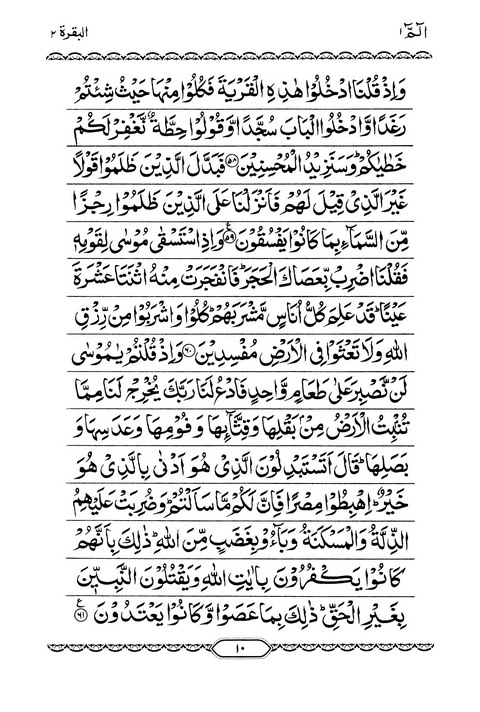 الٓمّٓ ۱
البقرة ۲
وَاِذْ قُلْنَا ادْخُلُوْا هٰذِهِ الْقَرْيَةَ فَكُلُوْا مِنْهَا حَيْثُ شِئْتُمْ
رَغَدًا وَّادْخُلُوا الْبَابَ سُجَّدًا وَّقُوْلُوْا حِطَّةٌ نَّغْفِرْ لَكُمْ
خَطٰيٰكُمْ ؕ وَسَنَزِيْدُ الْمُحْسِنِيْنَ ﴿۵۸﴾ فَبَدَّلَ الَّذِيْنَ ظَلَمُوْا قَوْلًا
غَيْرَ الَّذِيْ قِيْلَ لَهُمْ فَاَنْزَلْنَا عَلَى الَّذِيْنَ ظَلَمُوْا رِجْزًا
مِّنَ السَّمَآءِ بِمَا كَانُوْا يَفْسُقُوْنَ ﴿۵۹﴾ ع وَاِذِ اسْتَسْقٰى مُوْسٰى لِقَوْمِهٖ
فَقُلْنَا اضْرِبْ بِّعَصَاكَ الْحَجَرَ ؕ فَانْفَجَرَتْ مِنْهُ اثْنَتَا عَشْرَةَ
عَيْنًا ؕ قَدْ عَلِمَ كُلُّ اُنَاسٍ مَّشْرَبَهُمْ ؕ كُلُوْا وَاشْرَبُوْا مِنْ رِّزْقِ
اللّٰهِ وَلَا تَعْثَوْا فِى الْاَرْضِ مُفْسِدِيْنَ ﴿۶۰﴾ وَاِذْ قُلْتُمْ يٰمُوْسٰى
لَنْ نَّصْبِرَ عَلٰى طَعَامٍ وَّاحِدٍ فَادْعُ لَنَا رَبَّكَ يُخْرِجْ لَنَا مِمَّا
تُنْۢبِتُ الْاَرْضُ مِنْۢ بَقْلِهَا وَقِثَّآئِهَا وَفُوْمِهَا وَعَدَسِهَا وَ
بَصَلِهَا ؕ قَالَ اَتَسْتَبْدِلُوْنَ الَّذِيْ هُوَ اَدْنٰى بِالَّذِيْ هُوَ
خَيْرٌ ؕ اِهْبِطُوْا مِصْرًا فَاِنَّ لَكُمْ مَّا سَاَلْتُمْ ؕ وَضُرِبَتْ عَلَيْهِمُ
الذِّلَّةُ وَالْمَسْكَنَةُ وَبَآءُوْ بِغَضَبٍ مِّنَ اللّٰهِ ؕ ذٰلِكَ بِاَنَّهُمْ
كَانُوْا يَكْفُرُوْنَ بِاٰيٰتِ اللّٰهِ وَيَقْتُلُوْنَ النَّبِيّٖنَ
بِغَيْرِ الْحَقِّ ؕ ذٰلِكَ بِمَا عَصَوْا وَّكَانُوْا يَعْتَدُوْنَ ﴿۶۱﴾ ع
۱۰